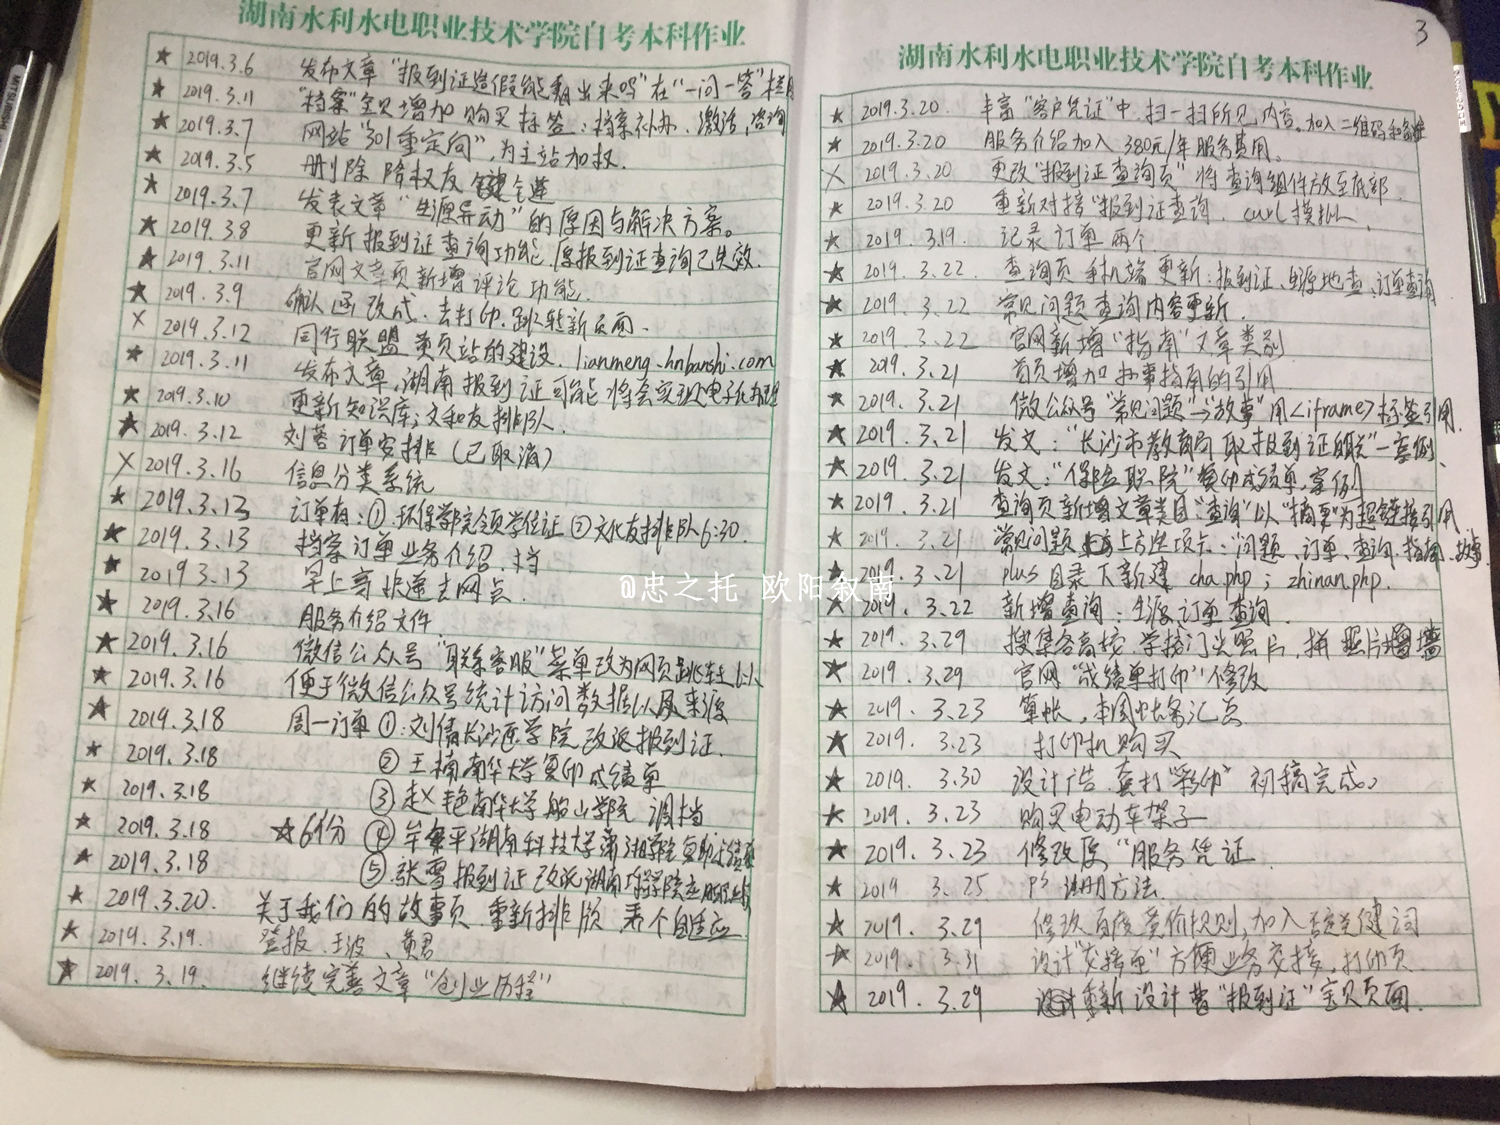 湖南水利水电职业技术学院自考本科作业
★ 2019.3.6 发布文章"报到证造假能看出来吗"在"一问一答"栏目
★ 2019.3.11 "档案"宝贝增加购买标签:档案补办、激活,咨询
★ 2019.3.7 网站"301重定向",为主站加权.
★ 2019.3.5 删除降权友链
★ 2019.3.7 发表文章"生源异动"的原因与解决方案。
★ 2019.3.8 更新报到证查询功能,原报到证查询已失效.
★ 2019.3.11 官网文章页新增评论功能.
★ 2019.3.9 确认函改成.去打印.跳转新页面.
X 2019.3.12 同行联盟黄页站的建设.lianmeng.hnbanshi.com
★ 2019.3.11 发布文章,湖南报到证可能将会实现电子化办理
★ 2019.3.10 更新知识库;文和友排队.
★ 2019.3.12 刘蓉订单安排(已取消)
X 2019.3.16 信息分类系统
★ 2019.3.13 订单有:①.环保学院领学位证 ②文化友排队6:30.
★ 2019.3.13 档案订单业务介绍.档
★ 2019.3.13 早上寄快递去网点.
★ 2019.3.16 服务介绍文件
★ 2019.3.16 微信公众号"联系客服"菜单改为网页跳转
★ 2019.3.16 便于微信公众号统计访问数据以及来源
★ 2019.3.18 周一订单①:刘倩长沙医学院改派报到证.
★ 2019.3.18 ②王楠南华大学复印成绩单
★ 2019.3.18 ③赵艳南华大学船山学院 调档
★ 2019.3.18 ★6份 ④ 平湖南科技大学潇湘学院
★ 2019.3.18 ⑤.张雪报到证改派湖南
★ 2019.3.20. 关于我们的故事页.重新排版 弄个自适应
★ 2019.3.19. 登报.王波、黄君
★ 2019.3.19. 继续完善文章"创业历程"
@忠之托 欧阳叙南
3
湖南水利水电职业技术学院自考本科作业
★ 2019.3.20. 丰富"客户凭证"中.扫一扫所见内容。加入二维码和
★ 2019.3.20 服务介绍加入380元/年服务费用。
X 2019.3.20 更改"报到证查询页"将查询组件放至底部
★ 2019.3.20 重新对接"报到证查询.curl模拟
★ 2019.3.19. 记录订单两个
★ 2019.3.22. 查询页手机端更新:报到证、生源地查、订单查询
★ 2019.3.22 常见问题查询内容更新.
★ 2019.3.22 官网新增"指南"文章类别
★ 2019.3.21 首页增加办事指南的引用
★ 2019.3.21 微公众号"常见问题"→"故事"用<iframe>标签引用.
★ 2019.3.21 发文:"长沙市教育局取报到证 联"一案例.
★ 2019.3.21 发文:"保险职院"复印成绩单,案例
★ 2019.3.21 查询页新增文章类目"查询"以"摘要"为超链接引用
★ 2019.3.21 常见问题 上方选项卡:"问题、订单、查询、指南、故事
★ 2019.3.21 plus目录下新建 cha.php;zhinan.php.
★ 2019.3.22 新增查询:生源、订单查询
★ 2019.3.29 搜集各高校学校门头照片,拼照片墙
★ 2019.3.29 官网"成绩单打印"修改
★ 2019.3.23 算帐,本周帐务汇总
★ 2019.3.23 打印机购买
★ 2019.3.30 设计广告.套打"彩印"初稿完成。
★ 2019.3.23 购买电动车架子
★ 2019.3.23 修改 "服务凭证
★ 2019 3.25 PS 方法
★ 2019.3.29 修改百度竞价规则,加入否定关键词
★ 2019.3.31 设计"交接单"方便业务交接,打印页.
★ 2019.3.29 重新设计 "报到证"宝贝页面.